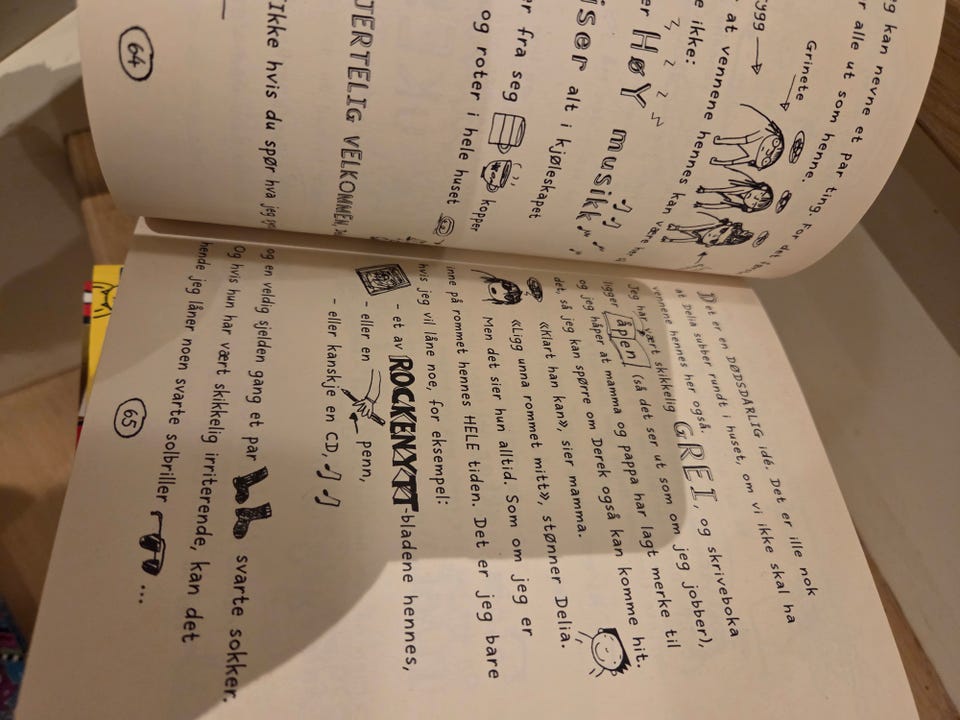 kan nevne et par ting. For det
alle ut som henne.
Grinete
at vennene hennes kan være
ikke:
HØY musikk
alt i kjøleskapet
fra seg kopper
og roter i hele huset
VELKOMMEN,
Ikke hvis du spør hva jeg
64
Det er en DØDSDÅRLIG idé. Det er ille nok
at Delia subber rundt i huset, om vi ikke skal ha
vennene hennes her også.
Jeg har vært skikkelig GREI, og skriveboka
ligger åpen (så det ser ut som om jeg jobber),
og jeg håper at mamma og pappa har lagt merke til
det, så jeg kan spørre om Derek også kan komme hit.
«Klart han kan», sier mamma.
«Ligg unna rommet mitt», stønner Delia.
Men det sier hun alltid. Som om jeg er
inne på rommet hennes HELE tiden. Det er jeg bare
hvis jeg vil låne noe, for eksempel:
- et av ROCKENYTT-bladene hennes,
- eller en penn,
- eller kanskje en CD,
og en veldig sjelden gang et par svarte sokker.
Og hvis hun har vært skikkelig irriterende, kan det
hende jeg låner noen svarte solbriller ...
65